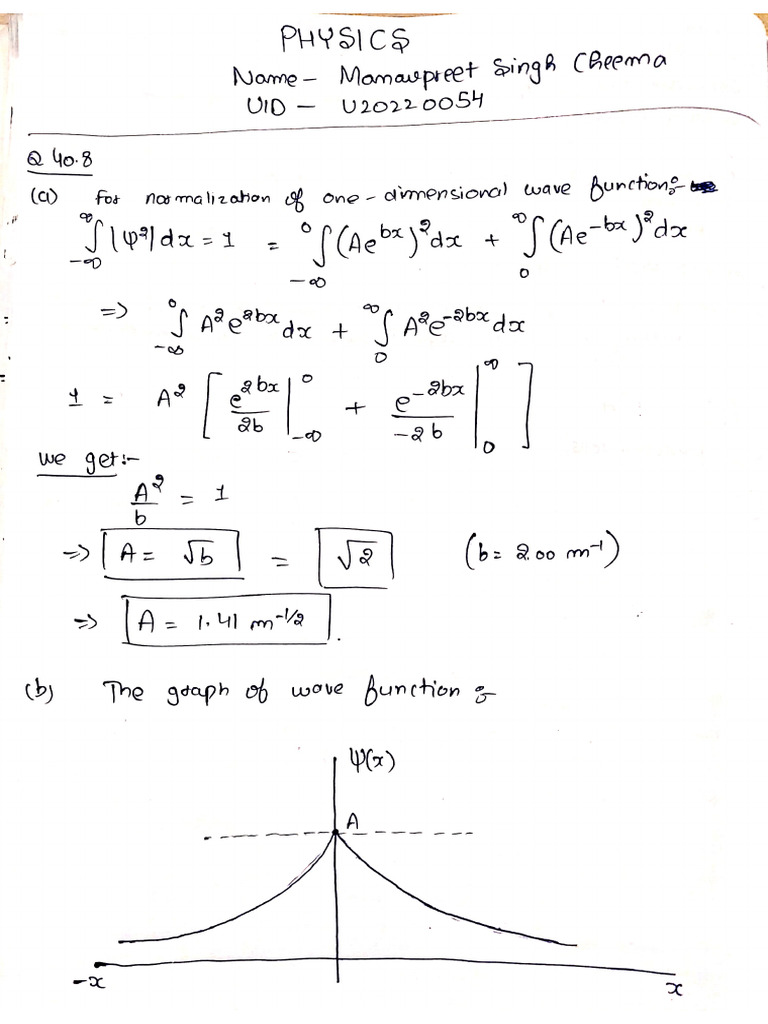 PHYSICS
Name - Manavpreet Singh Cheema
UID - U20220054
Q 40.8
(a) For normalization of one-dimensional wave function:-
∫_{-∞}^{∞} |ψ²| dx = 1 = ∫_{-∞}^{0} (Ae^{bx})² dx + ∫_{0}^{∞} (Ae^{-bx})² dx
=> ∫_{-∞}^{0} A² e^{2bx} dx + ∫_{0}^{∞} A² e^{-2bx} dx
1 = A² [ e^{2bx}/2b |_{-∞}^{0} + e^{-2bx}/-2b |_{0}^{∞} ]
we get:-
A²/b = 1
=> A = √b = √2 (b = 2.00 m⁻¹)
=> A = 1.41 m^{-1/2}.
(b) The graph of wave function :-
ψ(x)
A
-x x